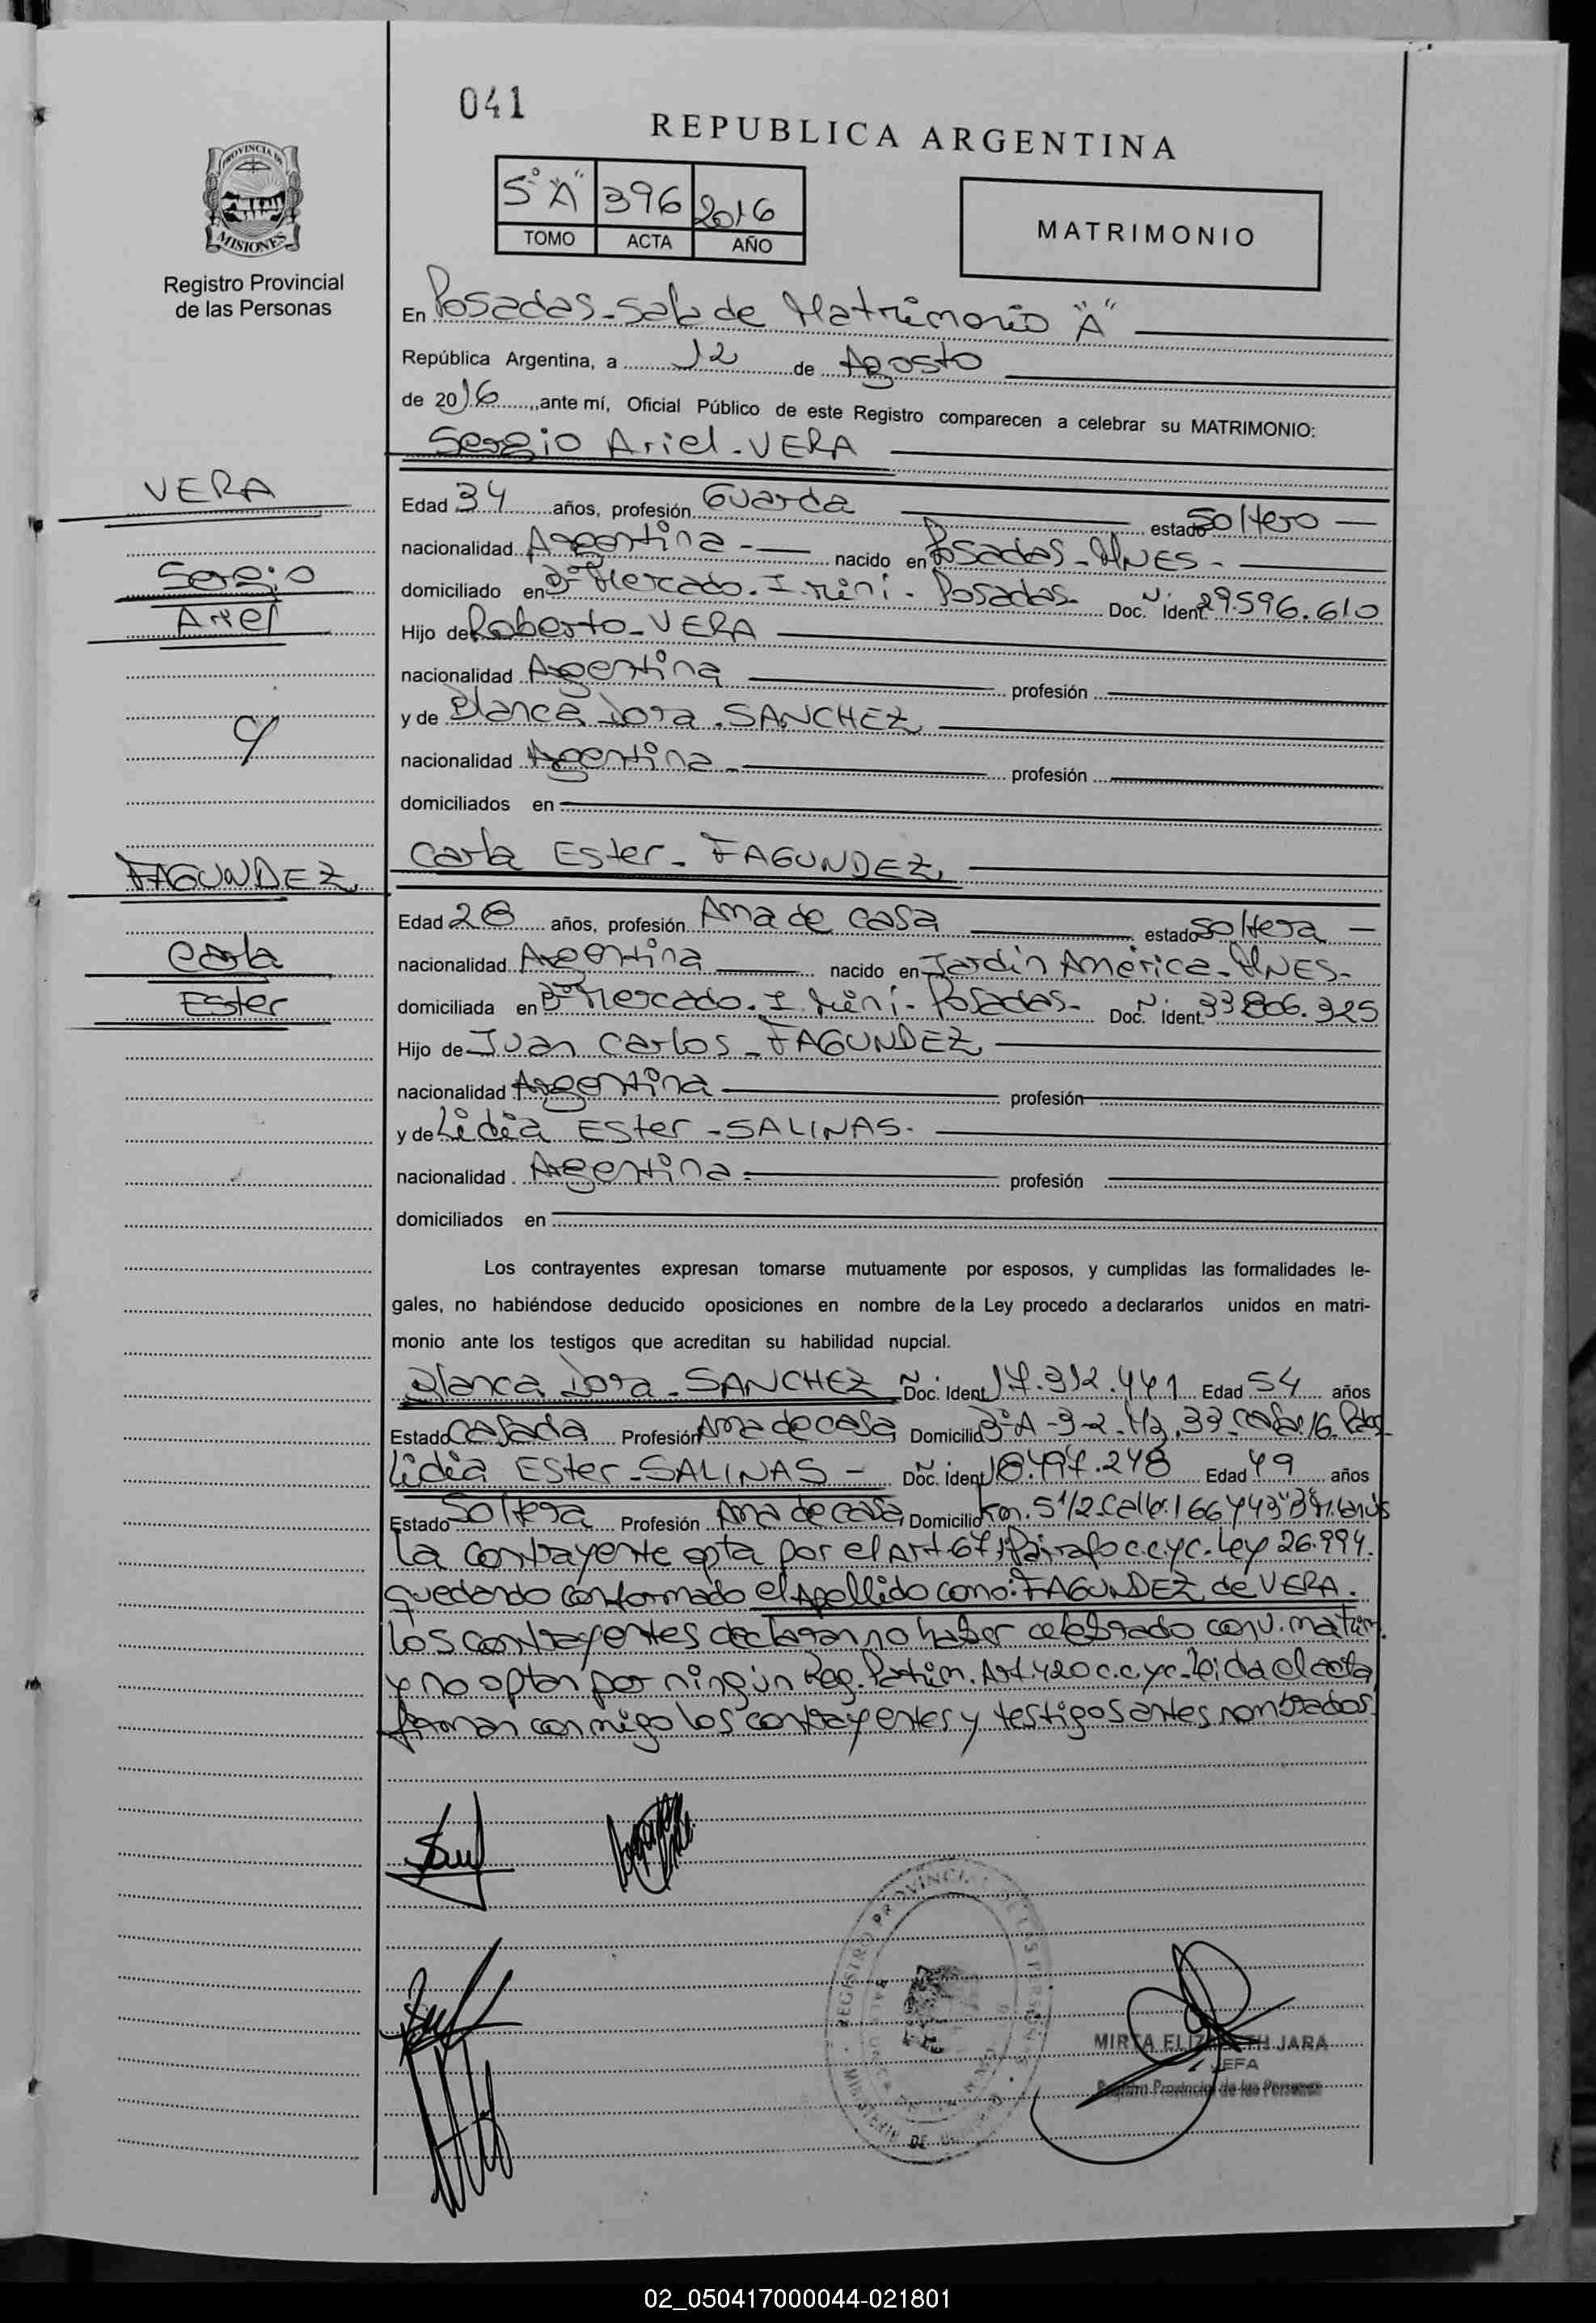 041
REPUBLICA ARGENTINA
PROVINCIA DE
MISIONES
Registro Provincial
de las Personas
5° "A" 396 2016
TOMO ACTA AÑO
MATRIMONIO
En Posadas - Sala de Matrimonio "A"
República Argentina, a 12 de Agosto
de 2016, ante mí, Oficial Público de este Registro comparecen a celebrar su MATRIMONIO:
Sergio Ariel - VERA
VERA
Sergio
Ariel
Edad 34 años, profesión Guarda estado Soltero
nacionalidad Argentina - nacido en Posadas - MNES -
domiciliado en B° Mercado. I. Miní - Posadas - Doc. N° Ident. 29.596.610
Hijo de Roberto - VERA
nacionalidad Argentina profesión
y de Blanca Dora - SANCHEZ
nacionalidad Argentina - profesión
domiciliados en
Carla Ester - FAGUNDEZ
FAGUNDEZ
Carla
Ester
Edad 28 años, profesión Ama de casa estado Soltera
nacionalidad Argentina nacido en Jardín América - MNES -
domiciliada en B° Mercado. I. Miní - Posadas - Doc. N° Ident. 33.806.325
Hijo de Juan Carlos - FAGUNDEZ
nacionalidad Argentina profesión
y de Lidia Ester - SALINAS -
nacionalidad Argentina - profesión
domiciliados en
Los contrayentes expresan tomarse mutuamente por esposos, y cumplidas las formalidades le-
gales, no habiéndose deducido oposiciones en nombre de la Ley procedo a declararlos unidos en matri-
monio ante los testigos que acreditan su habilidad nupcial.
Blanca Dora - SANCHEZ Doc. N° Ident 17.312.441 Edad 54 años
Estado Casada Profesión Ama de casa Domicilio B° A-3-2. Mz. 33 - Casa: 16. Pdas
Lidia Ester - SALINAS - Doc. N° Ident 18.497.248 Edad 49 años
Estado Soltera Profesión Ama de casa Domicilio Km. 5 1/2 - Calle: 166
La contrayente opta por el Art. 67 Párrafo c.c.yc. Ley 26.994.
quedando conformado el Apellido como: FAGUNDEZ de VERA.
los contrayentes declaran no haber celebrado conv. matrim.
y no optan por ningún Reg. Patrim. Art. 420 c.c.yc - leída el acta
firman conmigo los contrayentes y testigos antes nombrados.
REGISTRO PROVINCIAL DE LAS PERSONAS
MINISTERIO DE
MIRTA ELIZABETH JARA
JEFA
Registro Provincial de las Personas
02_050417000044-021801